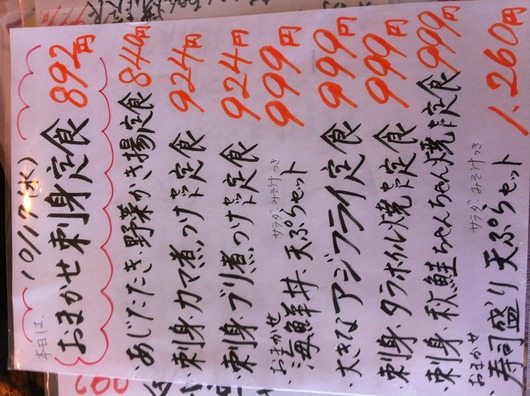 本日は、10/19(水)
おまかせ刺身定食 892円
・あじたたき・野菜かき揚定食 840円
・刺身・カマ煮つけ定食 924円
・刺身・ブリ煮つけ定食 924円
・おまかせ海鮮丼・天ぷらセット 999円
サラダ、みそ汁つき
・大きなアジフライ定食 999円
・刺身・タラホイル焼き定食 999円
・刺身・秋鮭ちゃんちゃん焼き定食 999円
・おまかせ寿司盛り 天ぷらセット 1,260円
サラダ、みそ汁つき